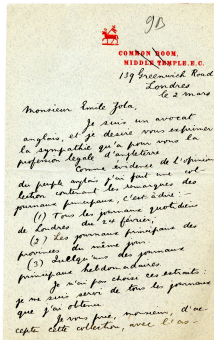 9B
COMMON ROOM,
MIDDLE TEMPLE. E.C.
139 Greenwich Road
Londres
le 2 mars
Monsieur Emile Zola,
Je suis un avocat
anglais, et je desire vous exprimer
la sympathie qu'a pour vous la
profession légale d'angleterre.
Comme evidence de l'opinion
du peuple anglais j'ai fait une col-
lection contenant les remarques des
journaux principaux, c'est à dire:
(1) Tous les journaux quotidiens
de Londres du 24 février,
(2) Les journaux principaux des
provinces du même jour.
(3) Quelqu'uns des journaux
principaux hebdomadaires.
Je n'ai pas choisi ces extraits:
je me suis servi de tous les journaux
que j'ai obtenu.
Je vous prie, monsieur, d'ac-
cepte cette collection, avec l'as-